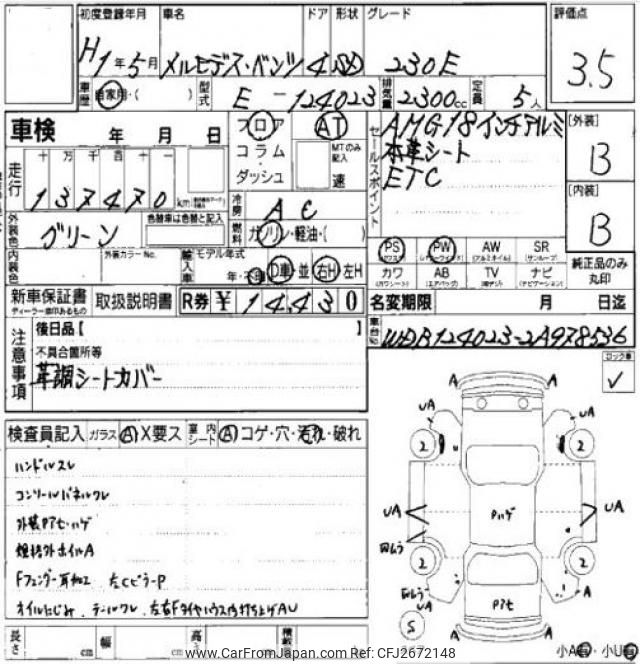 初度登録年月 車名 ドア 形状 グレード 評価点
H1年5月 メルセデス・ベンツ 4 230E 3.5
車歴 自家用・( ) 型式 E-124023 排気量 2300cc 定員 5人
車検 年 月 日 フロア AT セールスポイント AMG18インチアルミ [外装]
コラム MTのみ記入 本革シート B
ダッシュ 速 ETC
走行 十 万 千 百 十 一
137470 km
冷房 AC [内装]
外装色 グリーン 色替車は色替と記入 燃料 ガソリン・軽油・( ) B
PS PW AW SR
(パワステ) (パワーウインドウ) (アルミホイル) (サンルーフ)
内装色 外装カラーNo. 輸入車 モデル年式 純正品のみ丸印
年・ D車 並 右H 左H カワ AB TV ナビ
(カワシート) (エアバッグ) (ナビゲーション)
新車保証書 取扱説明書 R券 ¥14,430 名変期限 月 日迄
ディーラー印あるもの
車台No. WDB124023-2A978536
注意事項 後日品【 】
不具合箇所等
革調シートカバー
ロック車
✓
検査員記入 ガラス A X要ス 室内シート A コゲ・穴・汚れ・破れ
ハンドルスレ
コンソールパネルワレ
外装Pアセ・ハゲ
燃格外ホイルA
Fフェンダー耳加工 左CピラーP
オイルにじみ テールワレ 左右Fタイヤハウス内打ち上げAU
A A
UA UA
2 2
UA Pハゲ UA
凹ムラ
2 2
凹ムラ
UA Pアセ UA
S A A
長さ cm 幅 cm 高さ cm 積載
小A ・小U
www.CarFromJapan.com Ref. CFJ2672148